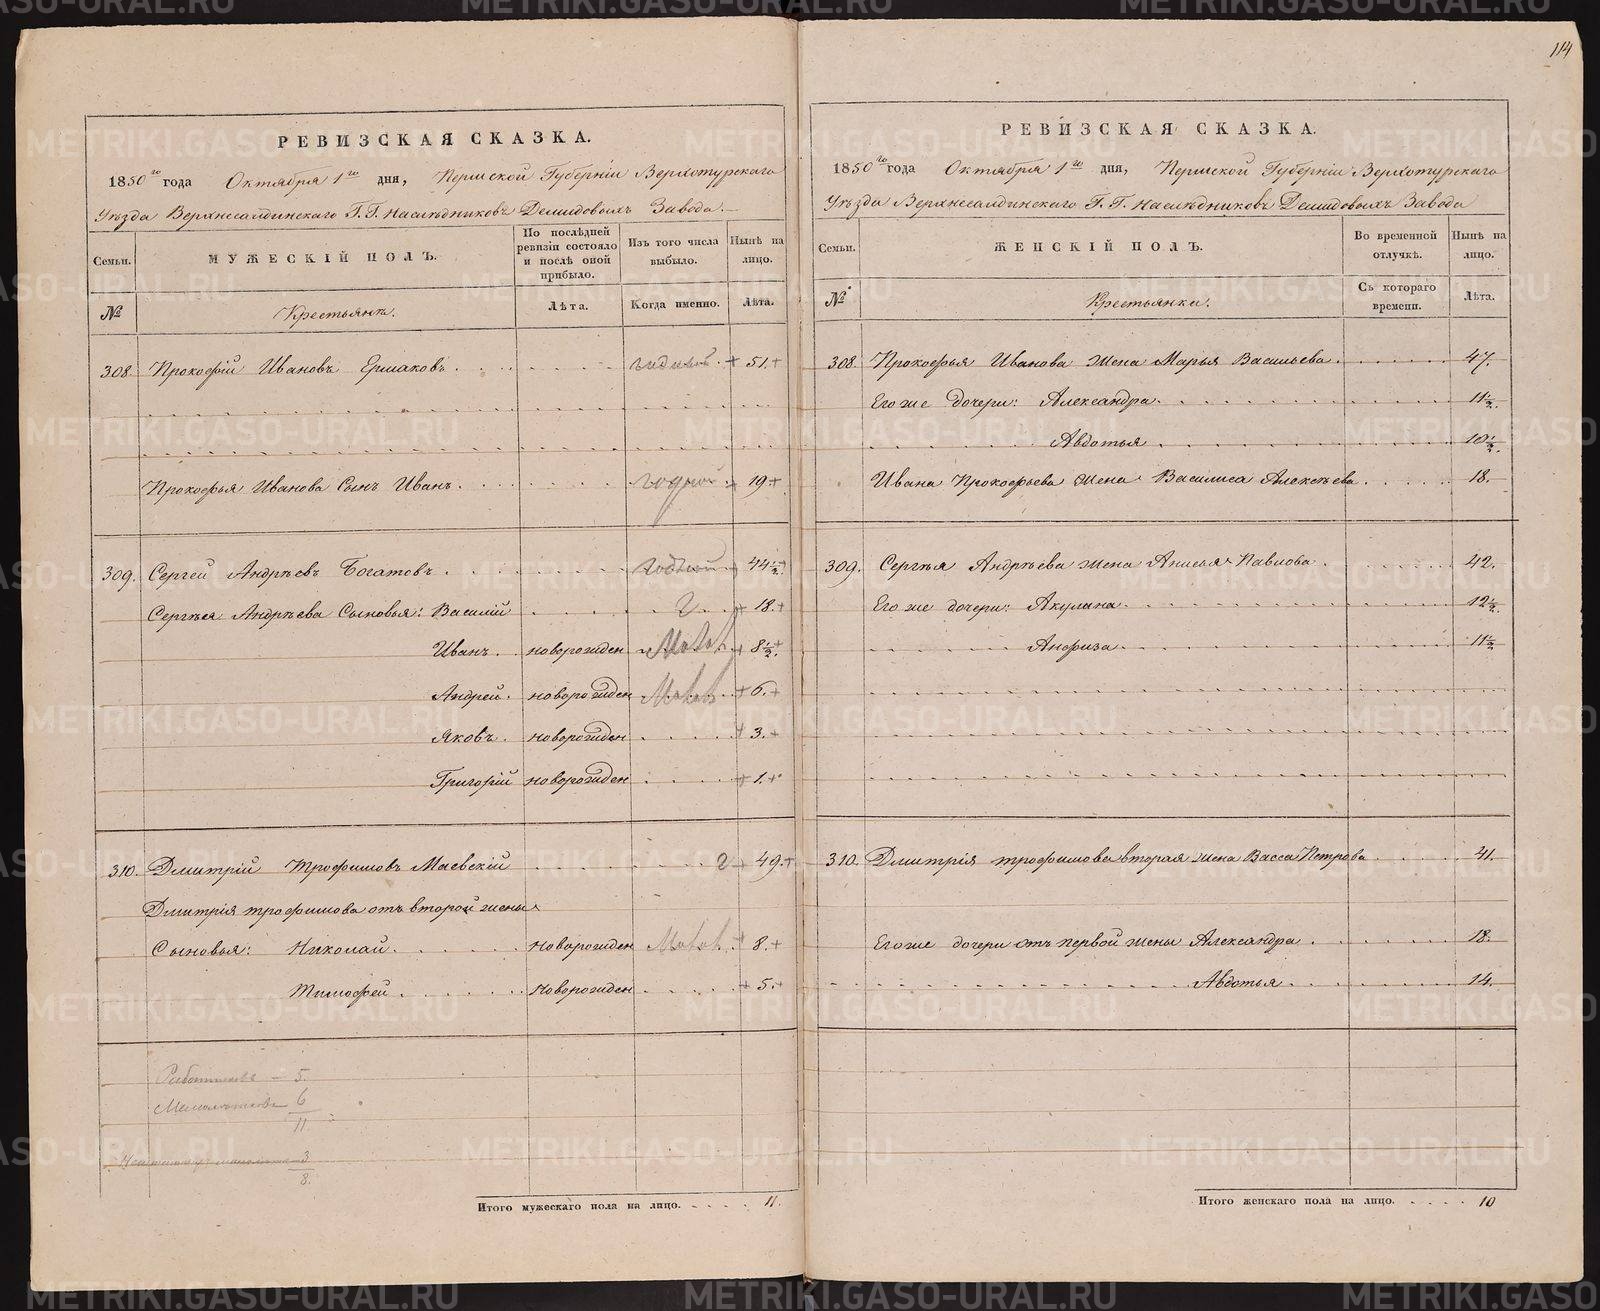 114
РЕВИЗСКАЯ СКАЗКА.
1850го года Октября 1го дня, Пермской Губерніи Верхотурскаго
Уѣзда Верхнесалдинскаго Г.Г. Наслѣдниковъ Демидовыхъ Завода.
Семьи. МУЖЕСКІЙ ПОЛЪ. По послѣдней ревизіи состояло и послѣ оной прибыло. Изъ того числа выбыло. Нынѣ на лицо.
№ Крестьяне. Лѣта. Когда именно. Лѣта.
308. Прокофій Ивановъ Ермаковъ годный + 51. +
Прокофья Иванова Сынъ Иванъ. годной + 19 +
309. Сергей Андрѣевъ Богатовъ годный + 44 1/2. +
Сергѣя Андрѣева Сыновья: Василій Г + 18. +
Иванъ. новорожден Малол + 8 1/2. +
Андрей. новорожден Малол + 6. +
Яковъ. новорожден + 3. +
Григорій новорожден + 1. +
310. Дмитрій Трофимовъ Маевскій Г + 49. +
Дмитрія Трофимова отъ второй жены
Сыновья: Николай новорожден Малол. + 8. +
Тимофей новорожден + 5. +
Работников — 5.
Малолѣтков 6
11
3
8.
Итого мужескаго пола на лицо. 11.
РЕВИЗСКАЯ СКАЗКА.
1850го года Октября 1го дня, Пермской Губерніи Верхотурскаго
Уѣзда Верхнесалдинскаго Г.Г. Наслѣдниковъ Демидовыхъ Завода
Семьи. ЖЕНСКІЙ ПОЛЪ. Во временной отлучкѣ. Нынѣ на лицо.
№ Крестьянки. Съ котораго времени. Лѣта.
308. Прокофья Иванова жена Марья Васильева. 47.
Его же дочери: Александра. 11 1/2.
Авдотья 10 1/2.
Ивана Прокофьева жена Василиса Алексѣева 18.
309. Сергѣя Андрѣева жена Анисья Павлова 42.
Его же дочери: Акулина. 12 1/2.
Анфиза 11 1/2
310. Дмитрія Трофимова вторая жена Васса Петрова 41.
Его же дочери отъ первой жены Александра 18.
Авдотья 14.
Итого женскаго пола на лицо. 10
METRIKI.GASO-URAL.RU